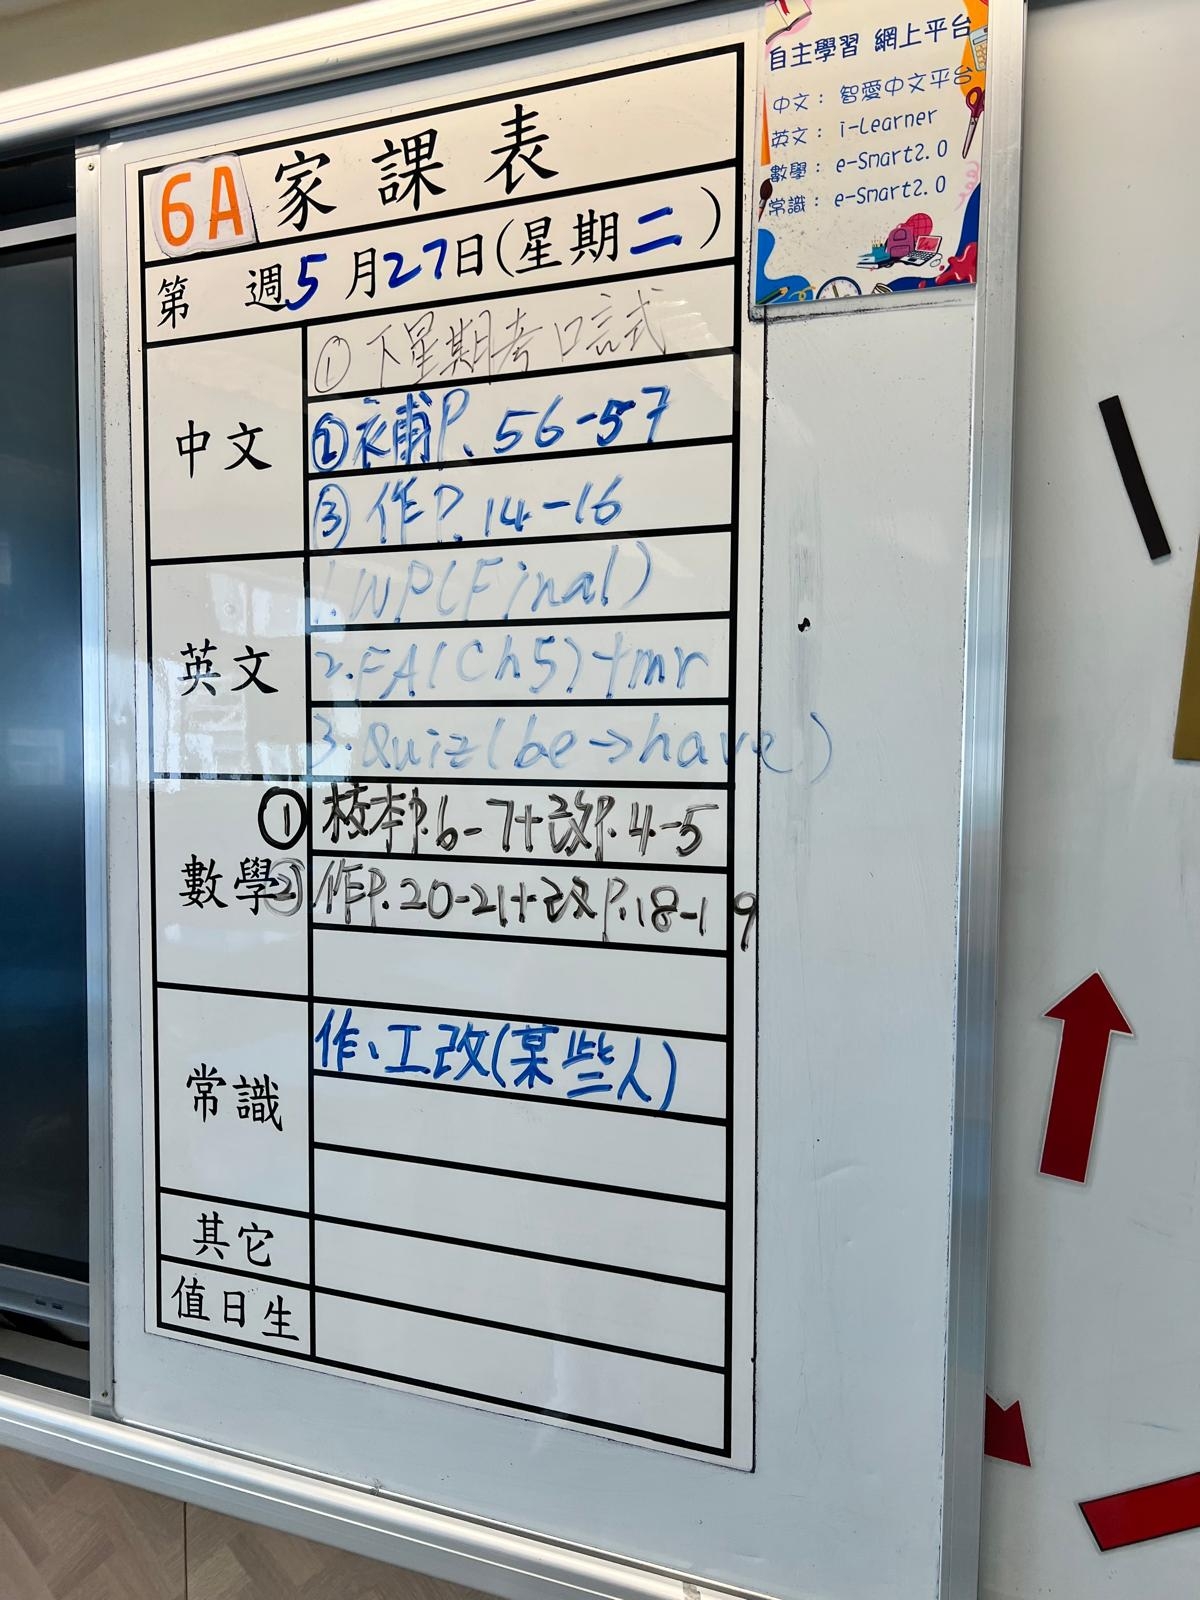 6A 家課表
第 週5月27日(星期二)
中文
① 下星期考口試
② 補P. 56-57
③ 作P. 14-16
英文
1. WP(Final)
2. FA(Ch5)+mr
3. Quiz(be→have)
數學
① 校本P.6-7+改P.4-5
② 作P.20-21+改P.18-19
常識
作、工改(某些人)
其它
值日生
自主學習 網上平台
中文： 智愛中文平台
英文： i-Learner
數學： e-Smart2.0
常識： e-Smart2.0